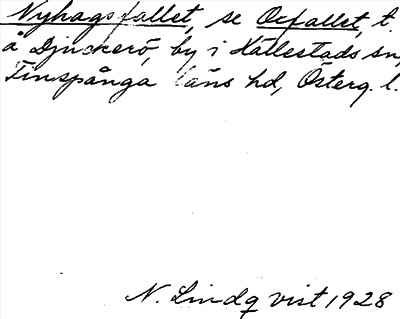 Nyhagsfallet, se Ocfallet, t.
å Djuckerö, by i Hällestads sn,
Finspånga läns hd, Österg. l.
N. Lindqvist 1928